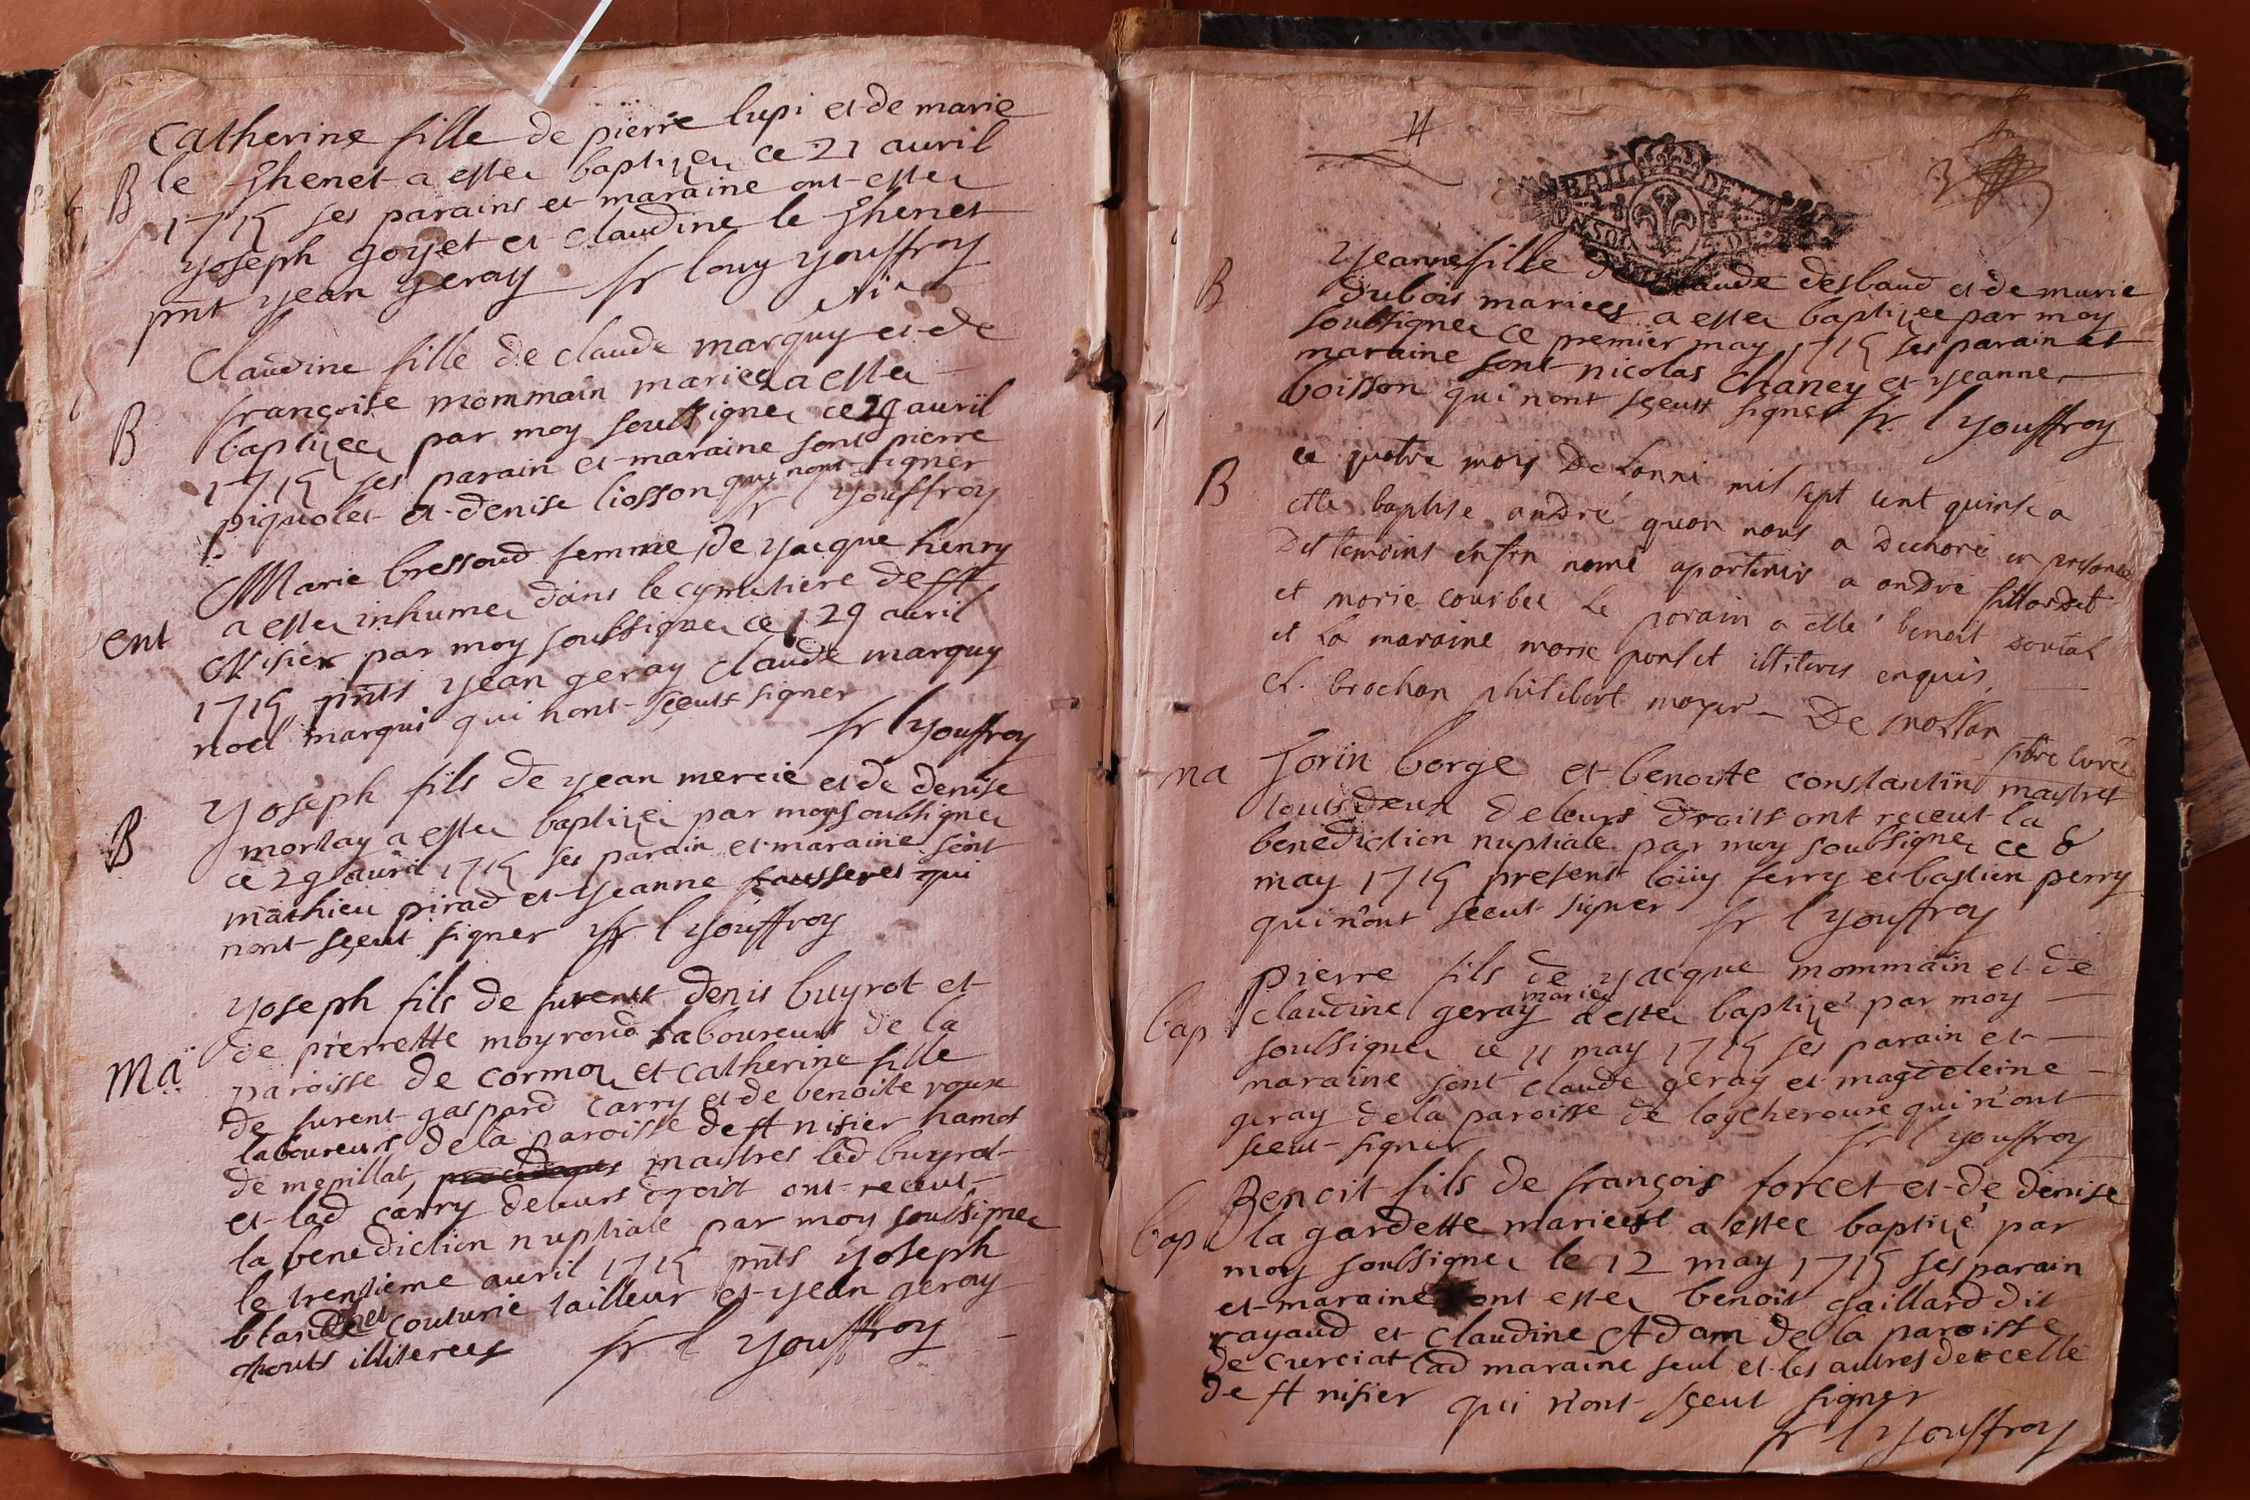 Catherine fille de pierre lupi et de marie
B le Thenet a estee baptizee ce 21 auril
1715 ses parains et maraine ont estee
yoseph goyet et claudine le Thenet
pnt yean geray fr louy youffroy
Claudine fille de claude marquy et de
françoise mommain mariez a estee
B baptizee par moy soussigner ce 29 auril
1715 ses parain et maraine sont pierre
piquolet et denise liosson qui nont signer
fr l youffroy
Marie bressoud femme de yacque henry
ent a estee inhumee dans le cymitiere de st
Nisier par moy soubsigner ce 29 auril
1715 pnts yean geray claude marquy
noel marqui qui nont sçeut signer
fr l youffroy
yoseph fils de yean mercie et de denise
B morlay a estee baptizei par moy soubsigner
ce 29 auril 1715 ses parain et maraine sont
mathieu pirad et yeanne qui
nont sçeut signer fr l youffroy
yoseph fils de furent denis buyrot et
de pierrette moyroud laboureurs de la
Ma paroisse de cormoz et catherine fille
de furent gaspard carry et de benoite roux
laboureurs de la paroisse de st nisier hamot
de mepillat, maistres led buyrot
et lad carry de leurs droist ont receut
la benediction nuptiale par moy soulsigner
le trentieme auril 1715 pnts yoseph
blandenet couturie tailleur et yean geray
touts illiterees fr l youffroy
11
BAIL DE
Yeanne fille de claude desbaud et de marie
B dubois mariees a estee baptizee par moy
soubsignee ce premier may 1715 ses parain et
maraine sont nicolas Chaney et yeanne
boisson qui nont sçeut signer fr. l youffroy
ce quatre may De Lanni mil sept cent quinse a
B este baptise andré quon nous a Declaré en presence
Des temoins enfin nomé apartenir a andré
et marie courbee Le parain a esté benoit
et La maraine marie ponset illiteres enquis
cl. brochon philibert moyer De
pbre curé
na Jorin borge et benoite constantin maistres
touts deux de leurs droits ont receut la
benediction nuptiale par moy soubsignee ce 8
may 1715 present loüy ferry et bastien perry
qui n'ont sceut signer fr l youffroy
pierre fils de yacque mommain et de
mariez
bap claudine geray a estee baptizé par moy
soulsignee ce 11 may 1715 ses parain et
maraine sont claude geray et magdeleine
geray de la paroisse de loycheroux qui n'ont
sceut signer fr l youffroy
Benoit fils de françois forcet et de denise
bap la gardette mariees a estee baptizé par
moy soulsignee le 12 may 1715 ses parain
et maraine ont estee benoit gaillard dit
rayaud et Claudine Adam de la paroisse
de Curciat lad maraine seul et les autres de celle
de st nisier qui n'ont sçeut signer
fr l youffroy